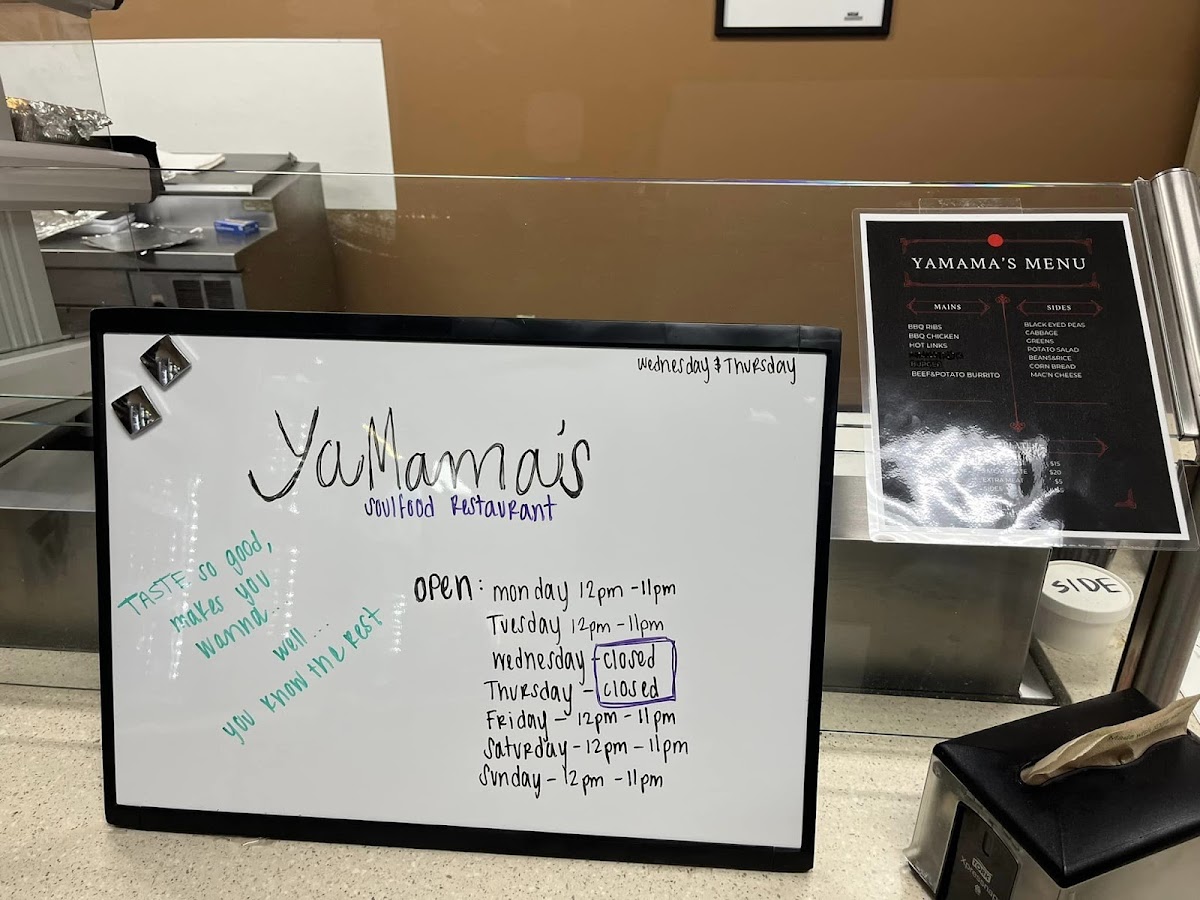 Wednesday & Thursday
YaMama's
soulfood Restaurant
TASTE so good,
makes you
wanna...
well...
you know the rest
open: monday 12pm -11pm
Tuesday 12pm -11pm
wednesday - closed
Thursday - closed
Friday - 12pm -11pm
Saturday - 12pm - 11pm
Sunday - 12pm -11pm
YAMAMA'S MENU
MAINS
BBQ RIBS
BBQ CHICKEN
HOT LINKS
BEEF&POTATO BURRITO
SIDES
BLACK EYED PEAS
CABBAGE
GREENS
POTATO SALAD
BEANS&RICE
CORN BREAD
MAC'N CHEESE
$15
PLATE $20
EXTRA MEAT $5
SIDES
SIDE
TORK
Xpressnap